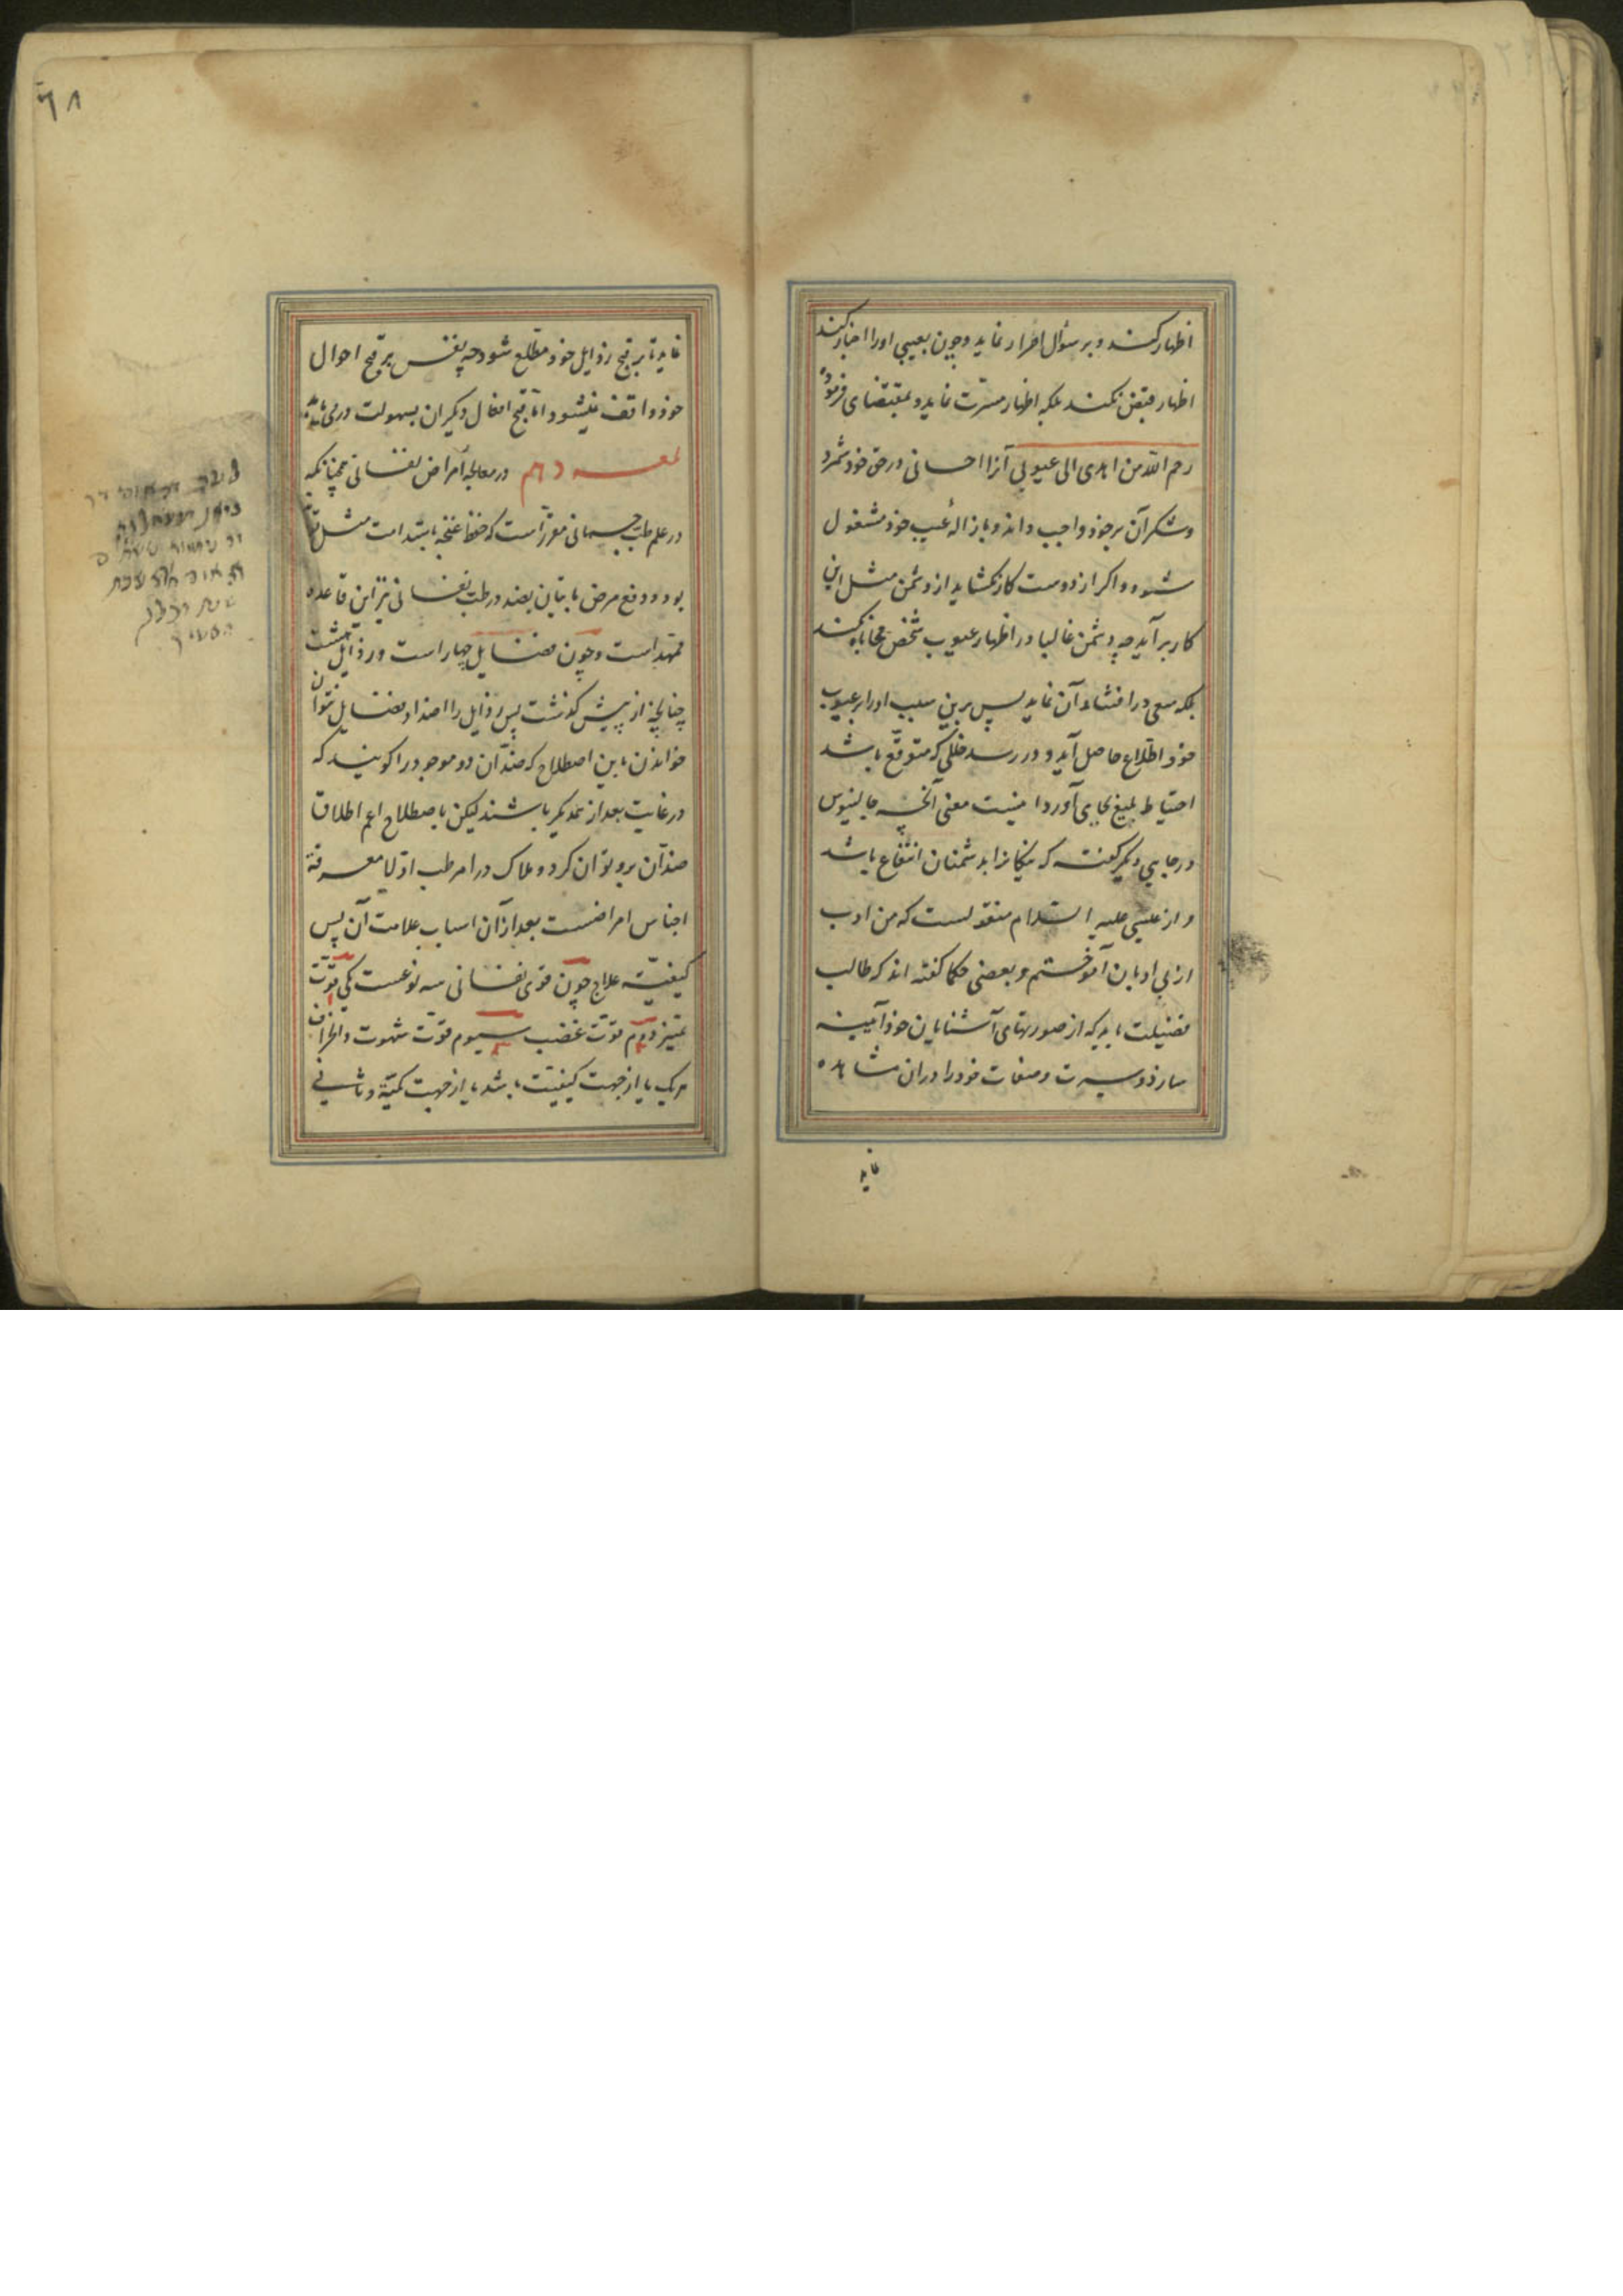 اظهار کند و بر سؤال اصرار نماید و چون بعیبی اورا اخبار کند
اظهار قبض نکند بلکه اظهار مسرّت نماید و بمقتضای فرموده
رحم الله من اهدی الی عیوبی آنرا احسانی در حق خود شمرد
و شکر آن بر خود واجب داند و بازالهٔ عیب خود مشغول
شود و اگر از دوست کار نکشاید از دشمن مثل این
کار بر آید چه دشمن غالبا در اظهار عیوب شخص محابا نکند
بلکه سعی در افشاء آن نماید پس برین سبب اورا بر عیوب
خود اطّلاع حاصل آید و در رسد خللی که متوقّع باشد
احتیاط بلیغ بجای آورد اینست معنی آنچه جالینوس
در جایی دیگر گفته که نیکانرا بدشمنان انتفاع باشد
و از عیسی علیه السّلام منقولست که من ادب
از بی ادبان آموختم و بعضی حکما گفته اند که طالب
فضیلت باید که از صورتهای آشنایان خود آیینه
سازد و سیرت و صفات خود را در ان مشاهده
نماید
٦٨
نماید تا بر قبح رذایل خود مطّلع شود چه نفس بر قبح احوال
خود واقف نیشود امّا قبح افعال دیگران بسهولت در می یابد
لمعه دهم در معالجهٔ امراض نفسانی همچنانکه
در علم طبّ جسمانی مقرّر است که حفظ صحّت
بود و دفع مرض باتیان بضد در طبّ نفسانی نیز این قاعده
ممهّد است و چون فضایل چهار است و رذایل هشت
چنانچه از پیش گذشت پس رذایل را اضداد فضایل نتوان
خواندن باین اصطلاح که ضدّان دو موجود را گویند که
در غایت بعد از یکدیگر باشند لیکن باصطلاح اعم اطلاق
ضد آن برو توان کرد و ملاک در امر طب اوّلا معرفة
اجناس امراضست بعد از آن اسباب علامت آن پس
کیفیّت علاج چون قوی نفسانی سه نوعست یکی قوّت
تمیز دوّم قوّت غضب سیوم قوّت شهوت و انحراف
هر یک یا از جهت کیفیّت باشد یا از جهت کمیّة و ثانی